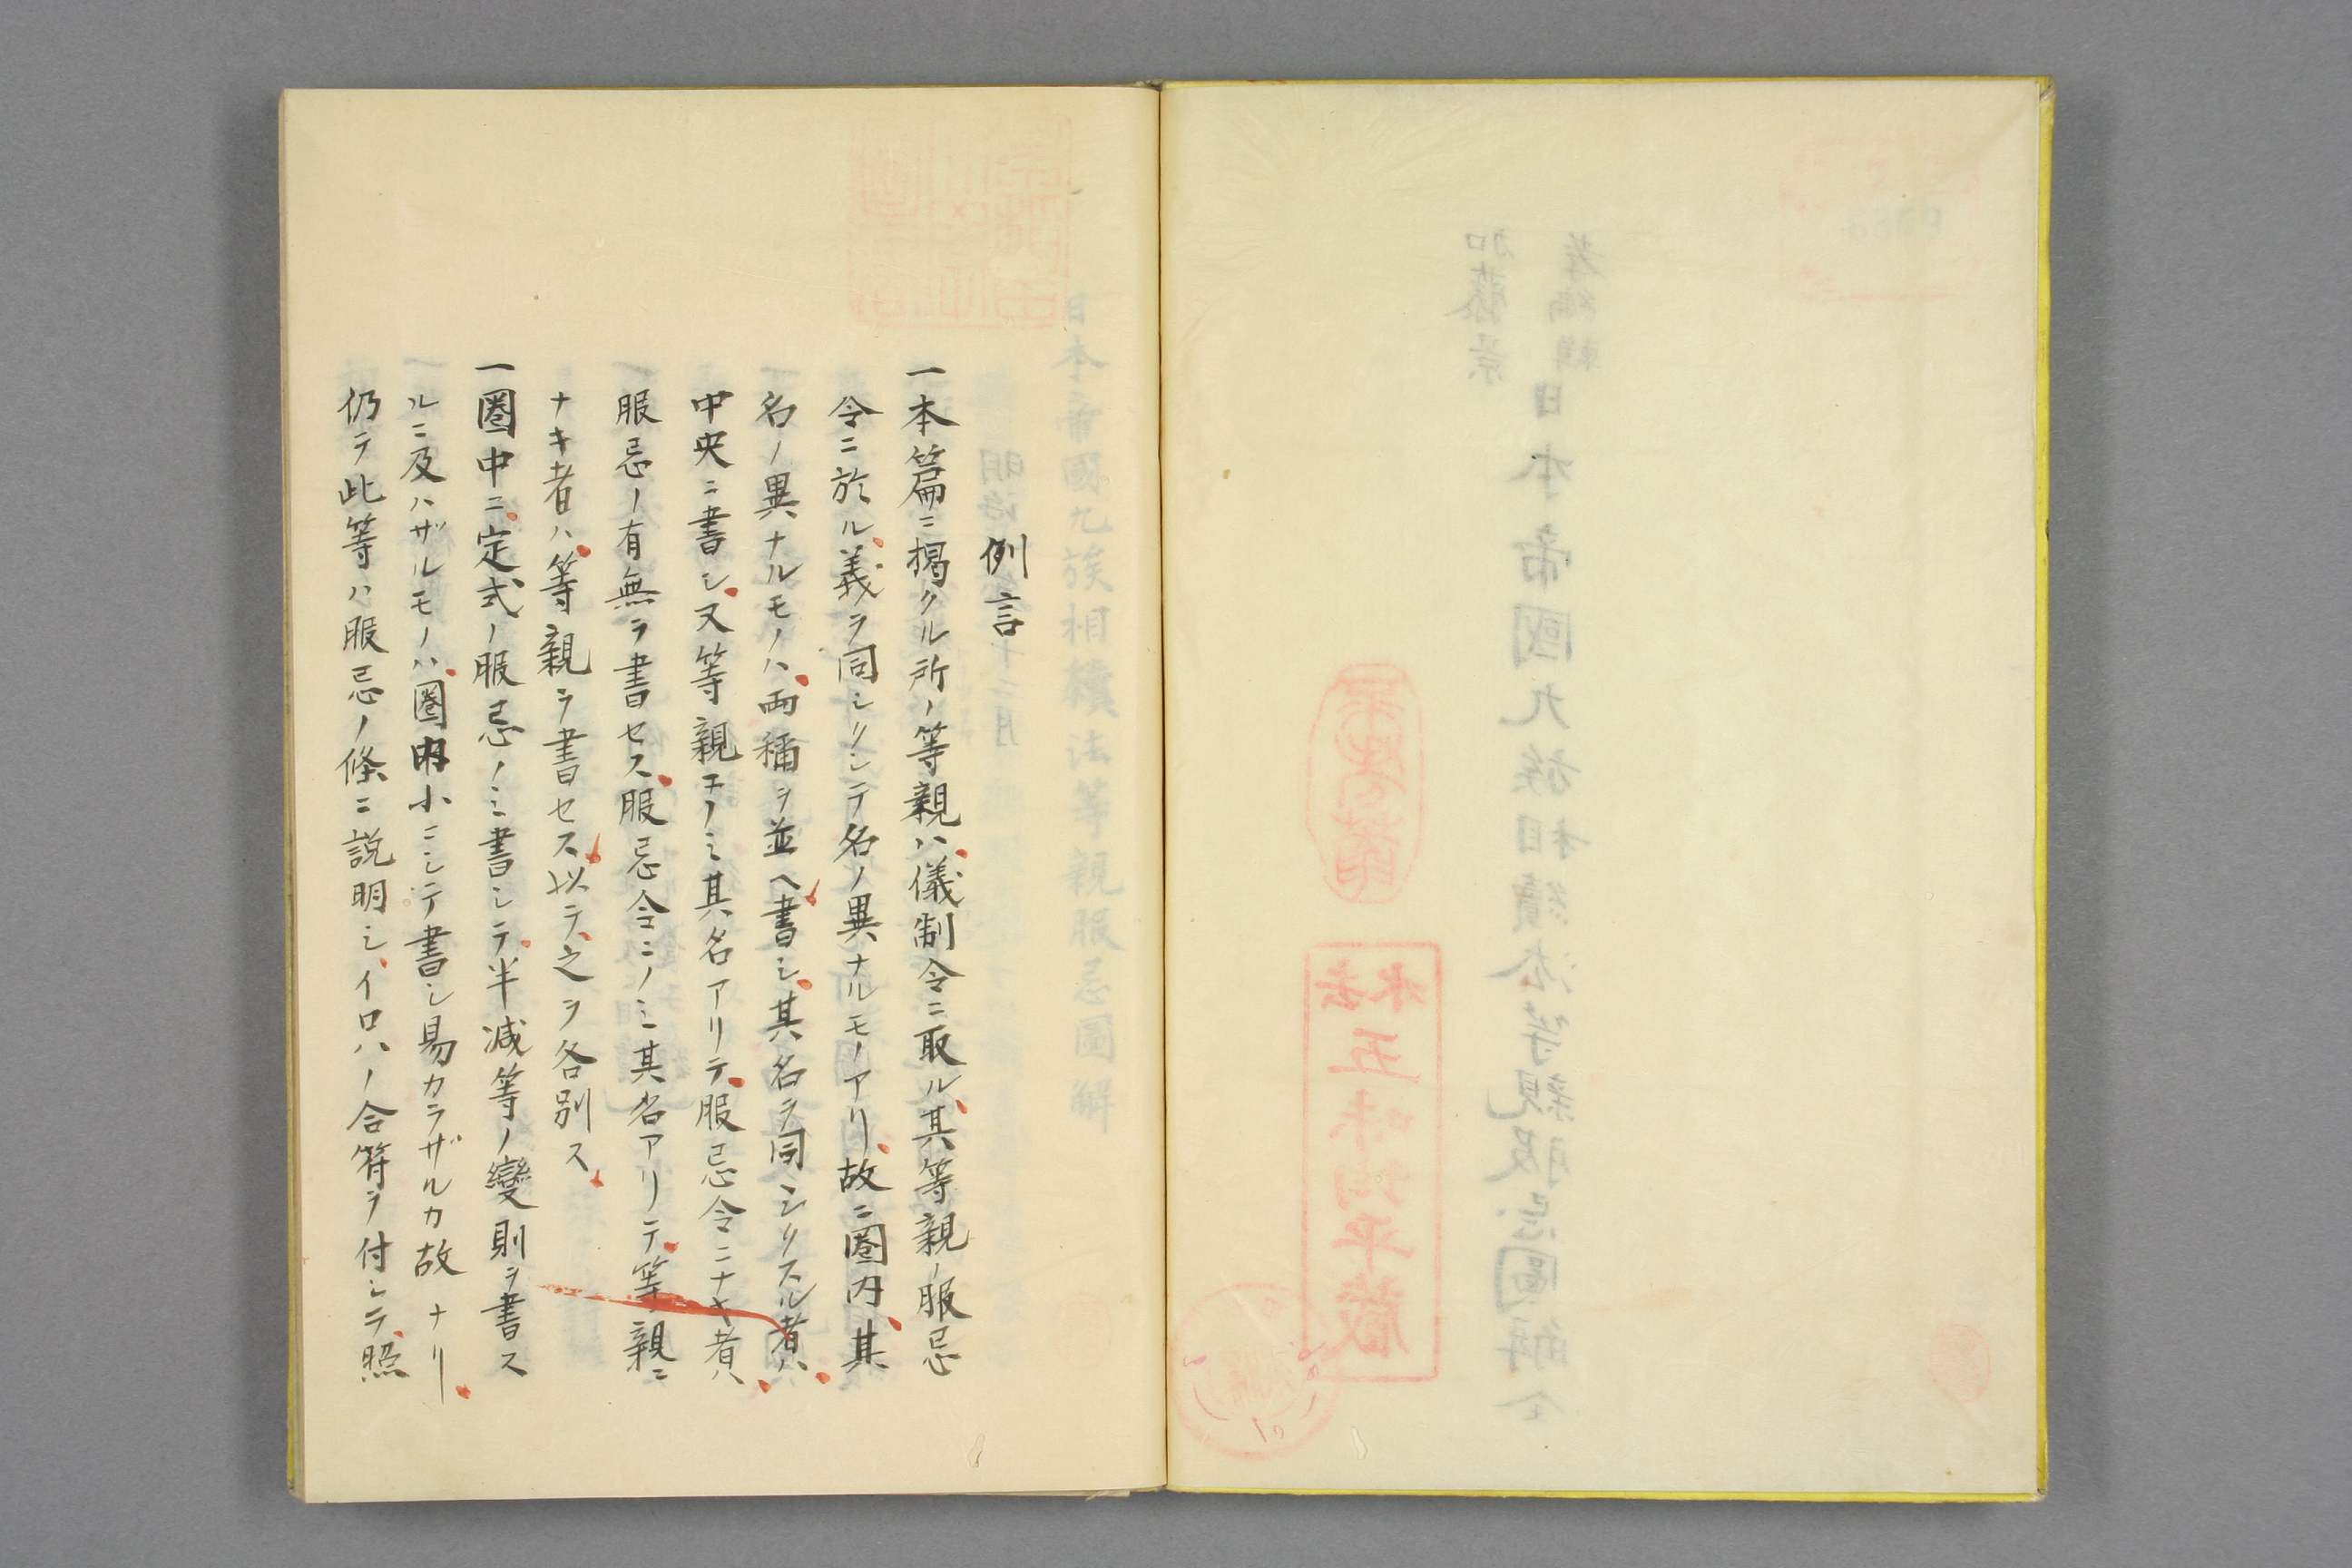 例言
一本篇ニ掲クル所ノ等親ハ儀制令ニ取ル其等親ノ服忌
令ニ於ル義ヲ同シクシテ名ノ異ナルモノアリ故ニ圏内其
名ノ異ナルモノハ両稱ヲ並ヘ書シ其名ヲ同シクスル者ハ
中央ニ書シ又等親ニノミ其名アリテ服忌令ニナキ者ハ
服忌ノ有無ヲ書セス服忌令ニノミ其名アリテ等親ニ
ナキ者ハ等親ヲ書セス以テ之ヲ各別ス
一圏中ニ定式ノ服忌ノミ書シテ半減等ノ變則ヲ書ス
ルニ及ハザルモノハ圏内小ニシテ書シ易カラザルカ故ナリ
仍テ此等ハ服忌ノ條ニ説明シイロハノ合符ヲ付シテ照